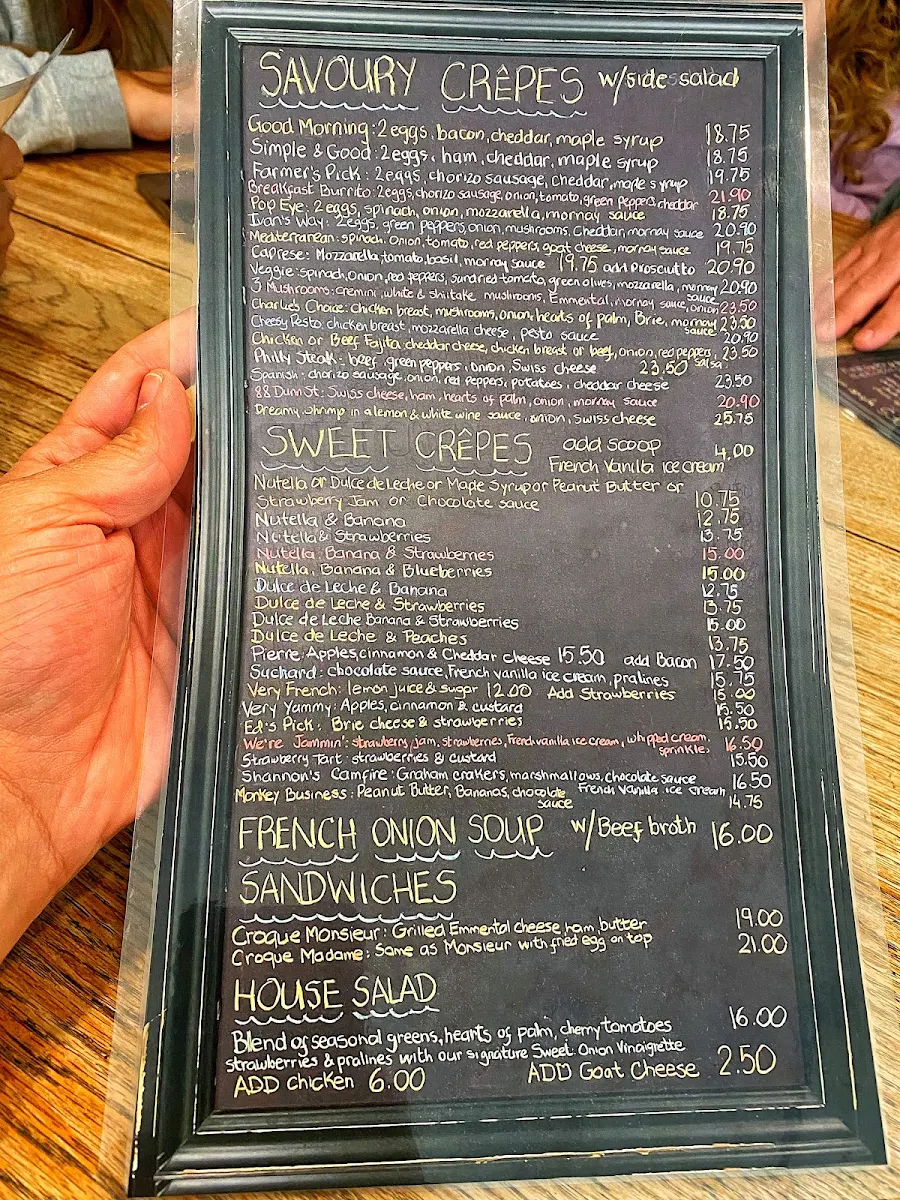 SAVOURY CRÊPES w/side salad
Good Morning: 2 eggs, bacon, cheddar, maple syrup 18.75
Simple & Good: 2 eggs, ham, cheddar, maple syrup 18.75
Farmer's Pick: 2 eggs, chorizo sausage, cheddar, maple syrup 19.75
Breakfast Burrito: 2 eggs, chorizo sausage, onion, tomato, green peppers, cheddar 21.90
Pop Eye: 2 eggs, spinach, onion, mozzarella, mornay sauce 18.75
Ivan's Way: 2 eggs, green peppers, onion, mushrooms, cheddar, mornay sauce 20.90
Mediterranean: spinach, onion, tomato, red peppers, goat cheese, mornay sauce 19.75
Caprese: Mozzarella, tomato, basil, mornay sauce 19.75 add Prosciutto 20.90
Veggie: spinach, onion, red peppers, sundried tomato, green olives, mozzarella, mornay sauce 20.90
3 Mushrooms: cremini, white & shiitake mushrooms, Emmental, mornay sauce, onion 23.50
Charlie's Choice: chicken breast, mushrooms, onion, hearts of palm, Brie, mornay sauce 23.50
Cheesy Pesto: chicken breast, mozzarella cheese, pesto sauce 20.90
Chicken or Beef Fajita: cheddar cheese, chicken breast or beef, onion, red peppers, salsa 23.50
Philly Steak: beef, green peppers, onion, Swiss cheese 23.50
Spanish: chorizo sausage, onion, red peppers, potatoes, cheddar cheese 23.50
88 Dunn St: Swiss cheese, ham, hearts of palm, onion, mornay sauce 20.90
Dreamy shrimp in a lemon & white wine sauce, onion, Swiss cheese 25.75
SWEET CRÊPES add scoop
French Vanilla ice cream 4.00
Nutella or Dulce de Leche or Maple Syrup or Peanut Butter or
Strawberry Jam or Chocolate sauce 10.75
Nutella & Banana 12.75
Nutella & Strawberries 13.75
Nutella, Banana & Strawberries 15.00
Nutella, Banana & Blueberries 15.00
Dulce de Leche & Banana 12.75
Dulce de Leche & Strawberries 13.75
Dulce de Leche Banana & Strawberries 15.00
Dulce de Leche & Peaches 13.75
Pierre: Apples, cinnamon & Cheddar cheese 15.50 add Bacon 17.50
Suchard: chocolate sauce, French vanilla ice cream, pralines 15.75
Very French: lemon juice & sugar 12.00 Add Strawberries 15.00
Very Yammy: Apples, cinnamon & custard 15.50
Ed's Pick: Brie cheese & strawberries 15.50
We're Jammin': strawberry jam, strawberries, French vanilla ice cream, whipped cream, sprinkles 16.50
Strawberry Tart: strawberries & custard 15.50
Shannon's Camfire: Graham crakers, marshmallows, chocolate sauce 16.50
French Vanilla ice cream
Monkey Business: Peanut Butter, Bananas, chocolate sauce 14.75
FRENCH ONION SOUP w/Beef broth 16.00
SANDWICHES
Croque Monsieur: Grilled Emmental cheese, ham, butter 19.00
Croque Madame: Same as Monsieur with fried egg on top 21.00
HOUSE SALAD
Blend of seasonal greens, hearts of palm, cherry tomatoes 16.00
strawberries & pralines with our signature Sweet Onion Vinaigrette
ADD chicken 6.00 ADD Goat Cheese 2.50